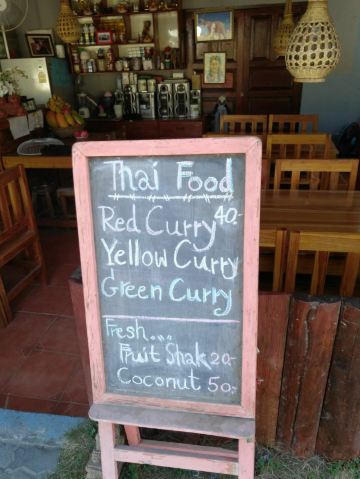 Thai Food
Red Curry 40.-
Yellow Curry
Green Curry
Fresh....
Fruit Shak 20.-
Coconut 50.-